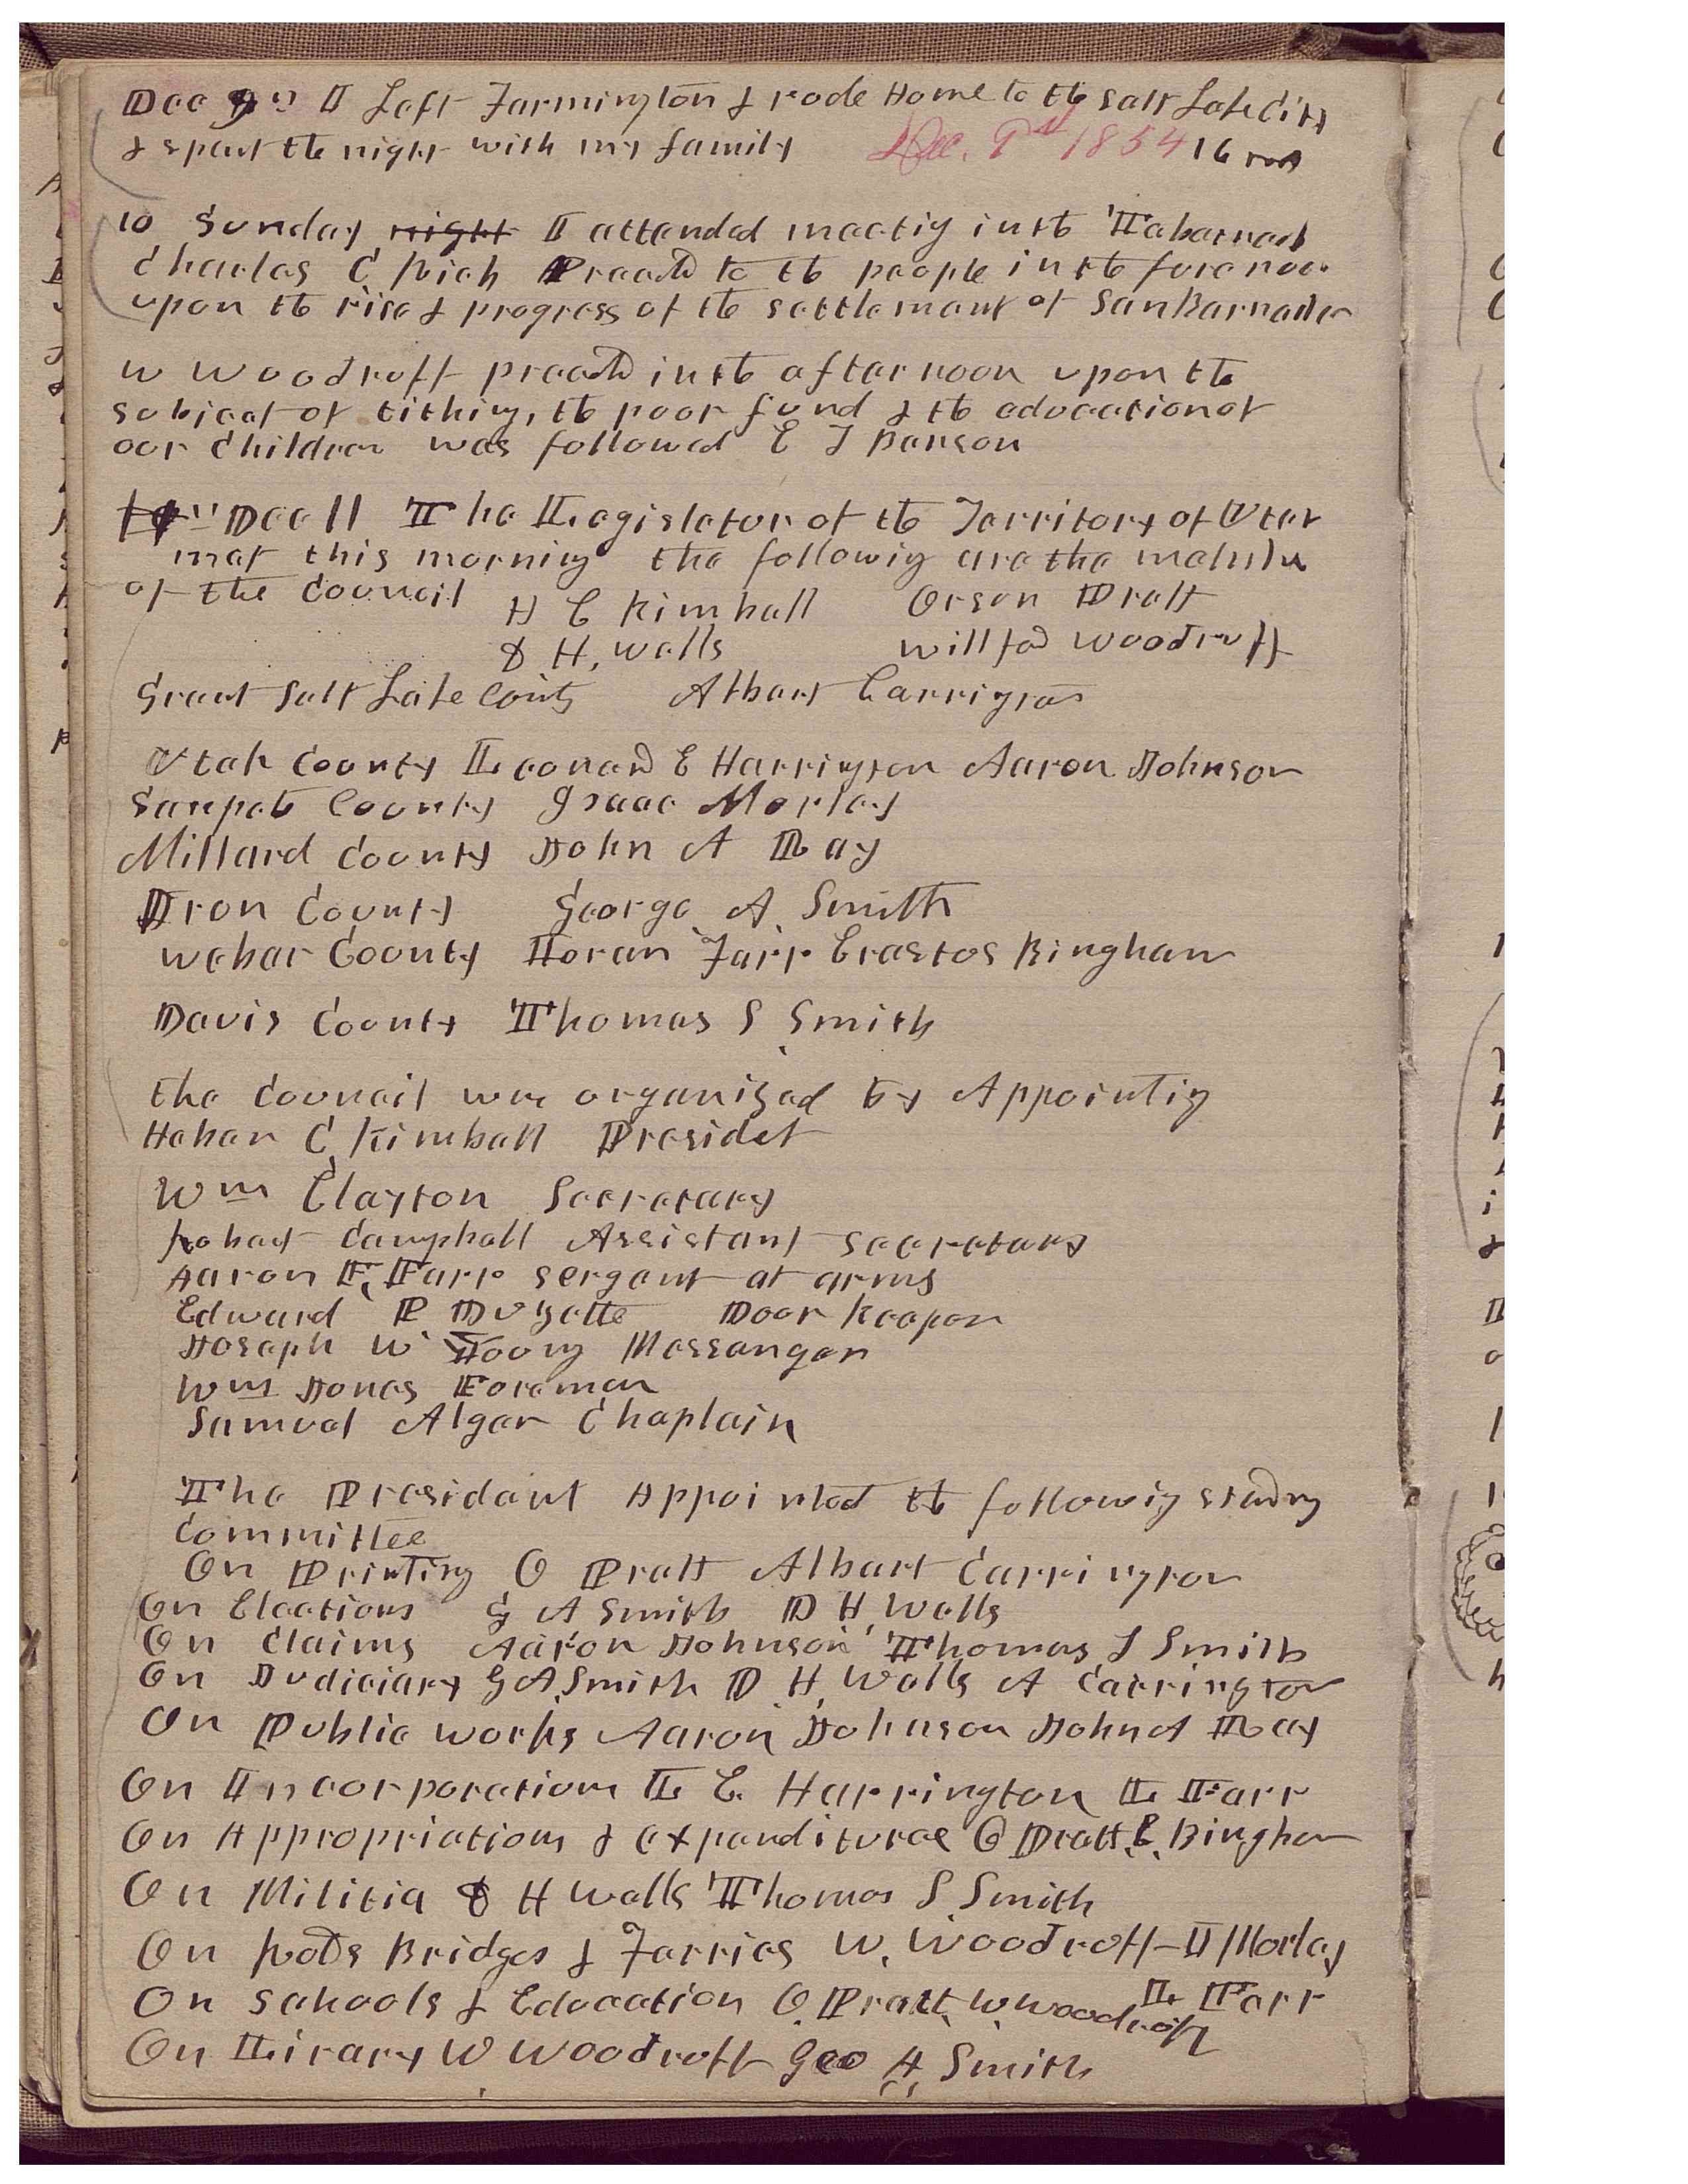 Dec 9th I Left Farmington & rode Home to the Salt Lake City
& spent the night with my family Dec. 9th 1854 16 mls
10 Sunday night I attended meetig in the Tabernacle
Charles C Rich Preachd to the people in the forenoon
upon the rise & progress of the settlement of SanBarnadeo
W Woodruff preachd in the afternoon upon the
subject of tithing, the poor fund & the education of
our Children was followed E T Benson
10'' Dec 11 The Legislator of the Territory of Utah
met this morning the followig are the members
of the Council H C Kimball Orson Pratt
D H. Wells Willford Woodruff
Great Salt Lake County Albert Carrigton
Utah County Leonard E Harrington Aaron Johnson
Sanpete County Isaac Morley
Millard County John A Ray
Iron County George A. Smith
Weber County Loran Farr Erastus Bingham
Davis County Thomas S Smith
the Council were organized by Appointig
Heber C Kimball Presidet
Wm Clayton Secretary
Robert Campbell Assistant Secretary
Aaron F. Farr sergant at arms
Edward P Duzette Door Keeper
Joseph W Young Messenger
Wm Jones Foreman
Samuel Alger Chaplain
The President Appointed the followig standing
Committee
On Printing O Pratt Albert Carrington
On Elections G A Smith D H Wells
On Claims Aaron Johnson Thomas S Smith
On Judiciary G A Smith D H, Wells A Carrington
On Public works Aaron Johnson John A Ray
On Incorporations L E. Harrington L Farr
On Appropriations & expenditures O Pratt E. Bingham
On Militia D H Wells Thomas S Smith
On Roads Bridges & Ferries W. Woodruff I Morley
On Schools & Education O. Pratt, W. Woodruff L Farr
On Lirary W Woodruff Geo A. Smith